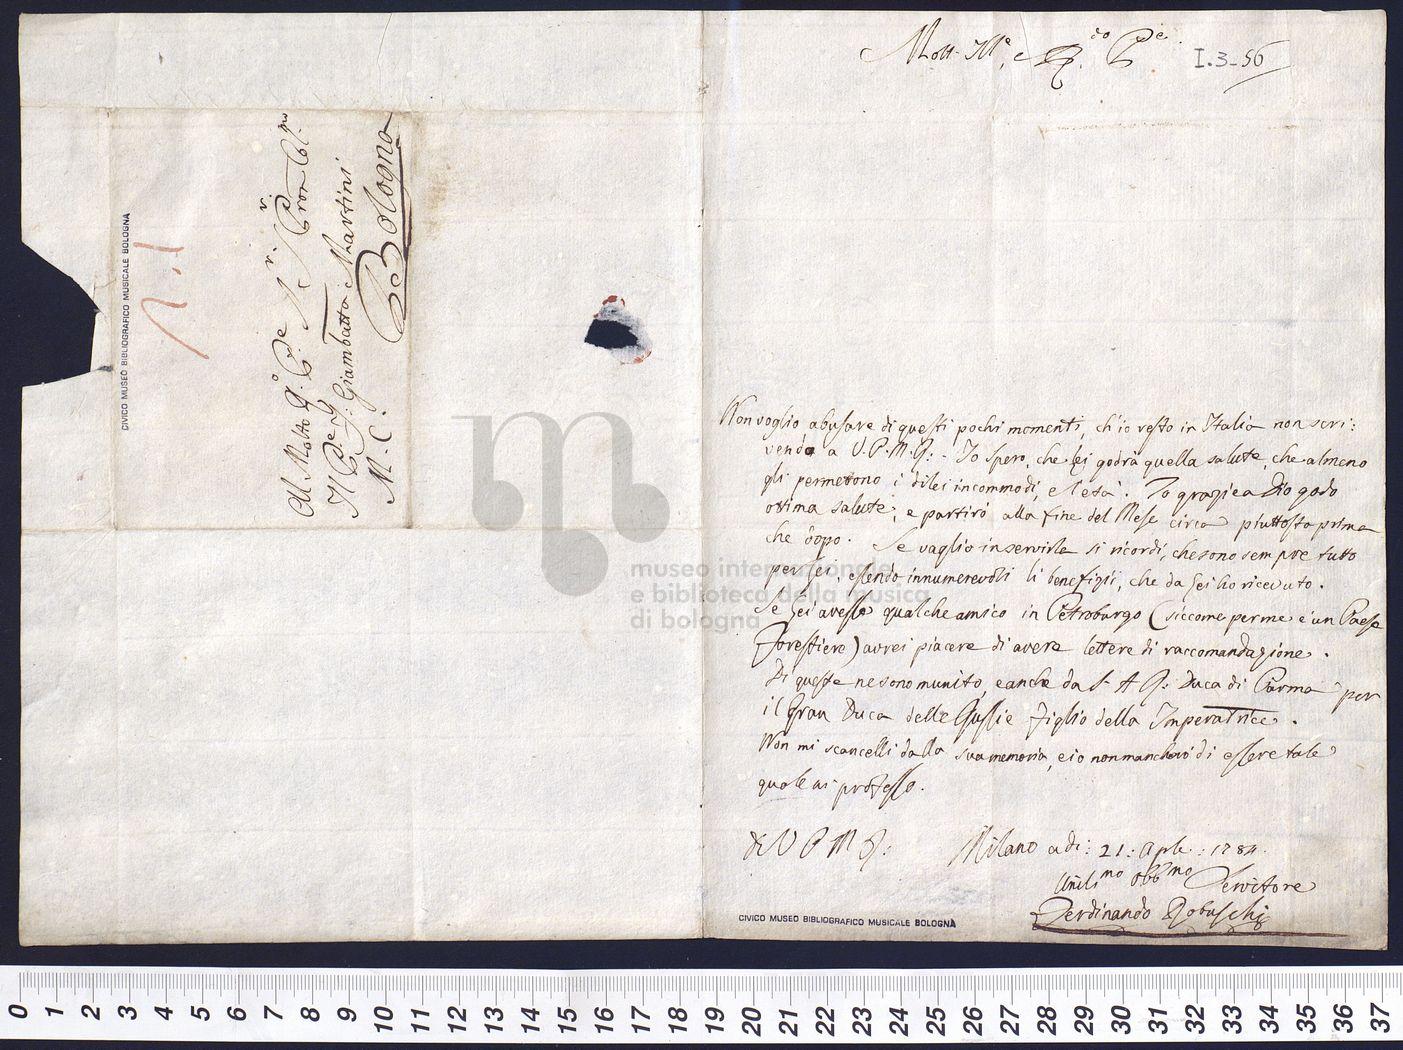 Molt. Ill.e e R.do P.e
I.3-56
Non voglio abusare di questi pochi momenti, ch'io resto in Italia non scri:
vendo a V. P. M. R: - Io spero, che Lei godrà quella salute, che almeno
gli permetono i dilei incommodi, e l'età. Io grazie a Dio godo
ottima salute; e partirò alla fine del Mese circa piuttosto prima
che dopo. Se vaglio in servirla si ricordi, che sono sempre tutto
per Lei, essendo innumerevoli li benefizii, che da Lei ho ricevuto.
Se Lei avesse qualche amico in Petroburgo (siccome per me è un Paese
Forestiere) avrei piacere di avere lettere di raccomandazione.
Di queste ne sono munito, e anche da S. A R: Duca di Parma per
il Gran Duca delle Russie figlio della Imperatrice.
Non mi scancelli dalla sua memoria, e io non mancherò di essere tale
quale mi protesto.
di V P M R:
Milano adi: 21: Aple: 1784.
Umilmo Obbmo Servitore
Ferdinando Robuschi
CIVICO MUSEO BIBLIOGRAFICO MUSICALE BOLOGNA
CIVICO MUSEO BIBLIOGRAFICO MUSICALE BOLOGNA
Al Molto R.o P.e S.r e P.ron Col.mo
Il P.e Giambatta Martini
M. C.
Bologna
museo internazionale
e biblioteca della musica
di bologna
0 1 2 3 4 5 6 7 8 9 10 11 12 13 14 15 16 17 18 19 20 21 22 23 24 25 26 27 28 29 30 31 32 33 34 35 36 37